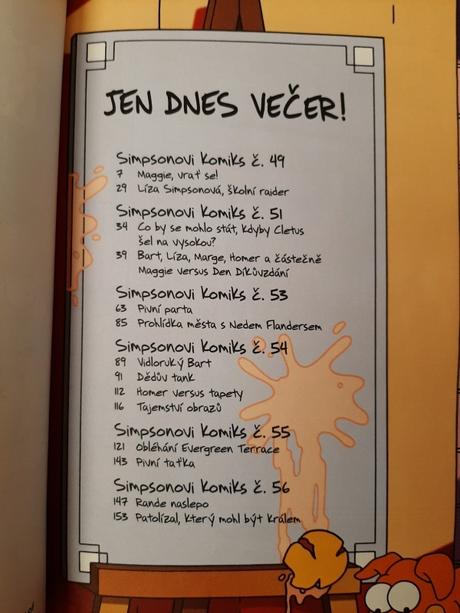 JEN DNES VEČER!
Simpsonovi Komiks č. 49
7 Maggie, vrať se!
29 Líza Simpsonová, školní raider
Simpsonovi Komiks č. 51
34 Co by se mohlo stát, kdyby Cletus
šel na vysokou?
39 Bart, Líza, Marge, Homer a částečně
Maggie versus Den Díkůvzdání
Simpsonovi Komiks č. 53
63 Pivní parta
85 Prohlídka města s Nedem Flandersem
Simpsonovi Komiks č. 54
89 Vidloruký Bart
91 Dědův tank
112 Homer versus tapety
116 Tajemství obrazů
Simpsonovi Komiks č. 55
121 Obléhání Evergreen Terrace
143 Pivní taťka
Simpsonovi Komiks č. 56
147 Rande naslepo
153 Patolízal, který mohl být králem